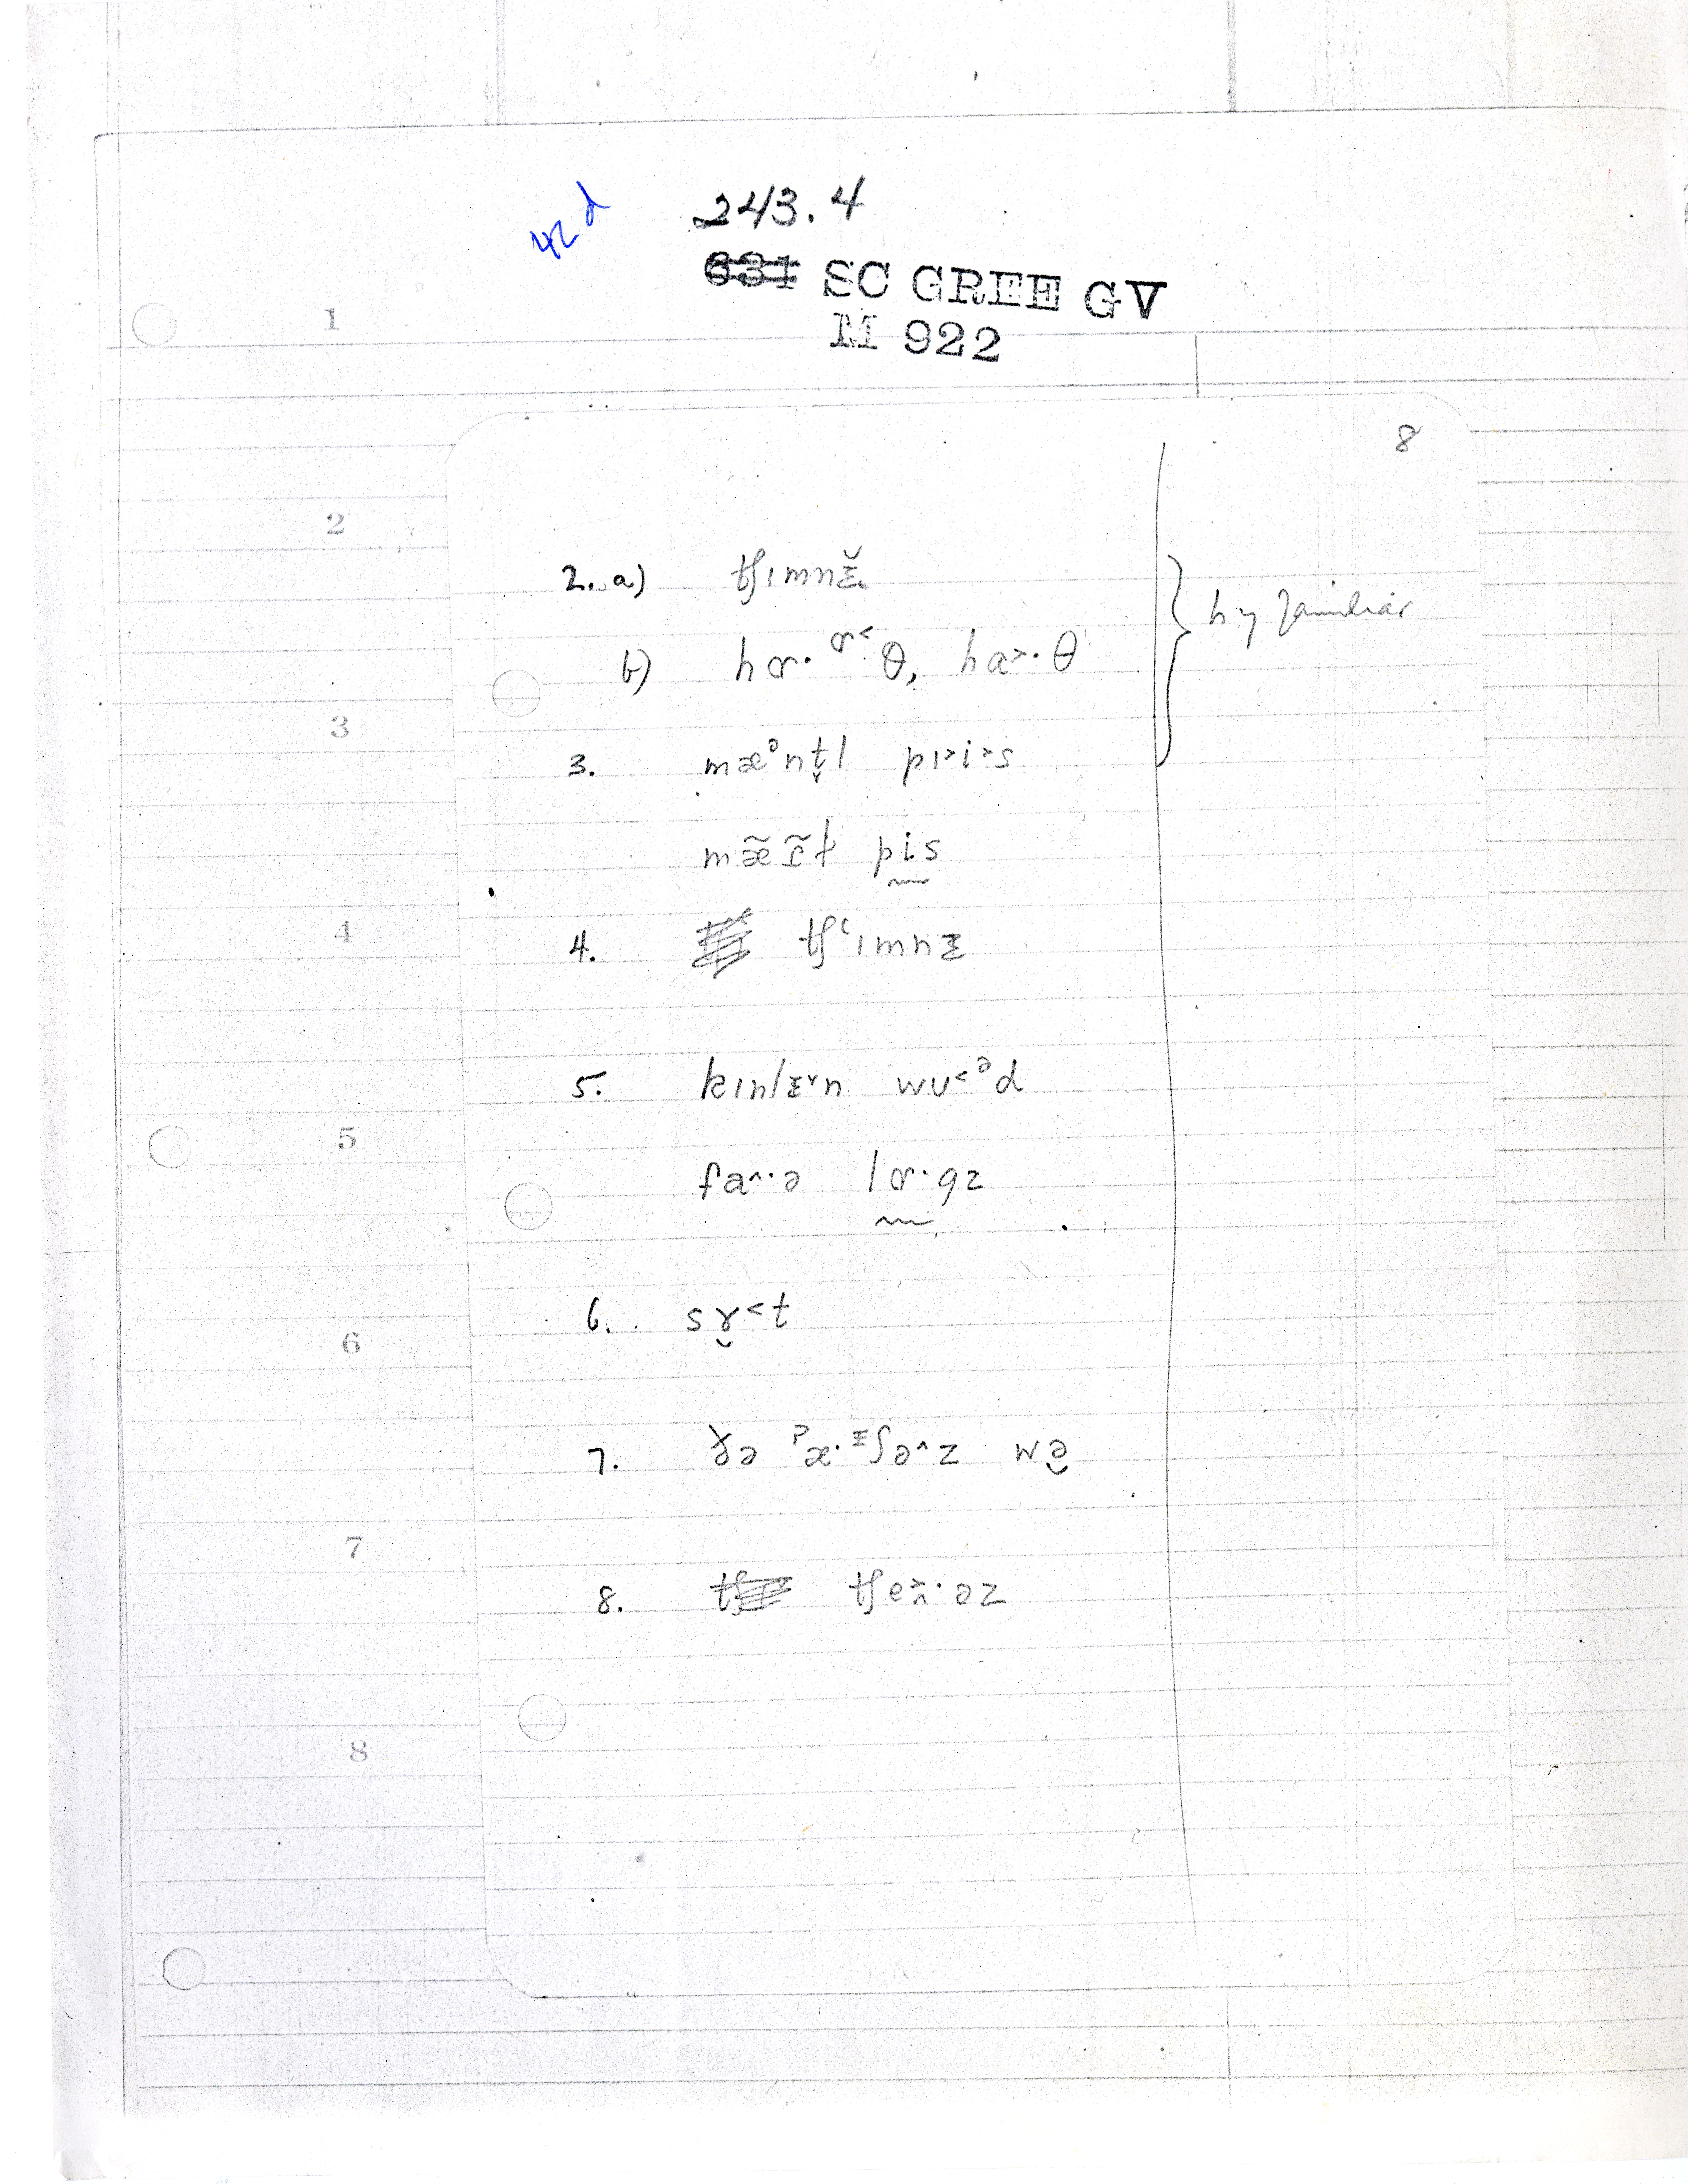 42d
243.4
631 SC GREE GV
M 922
8
1
2
3
4
5
6
7
8
2. a) tʃɪmnᵻ̌
b) hɒ· ɒ˂· θ, ha˃· θ
3. mæᵊnt̬l pɪ˃i˃s
mæ̃ɾ̃ɫ pis
4. tʃʻɪmnᵻ
5. kɪnlᵻ˅n wʊ˂ᵊd
fa˄·ə lɒ·gz
6. sɤ̯˂t
7. ðə ˀæ·ᵻʃə˄z wə̯
8. tʃe˃·əz
} h y familiar